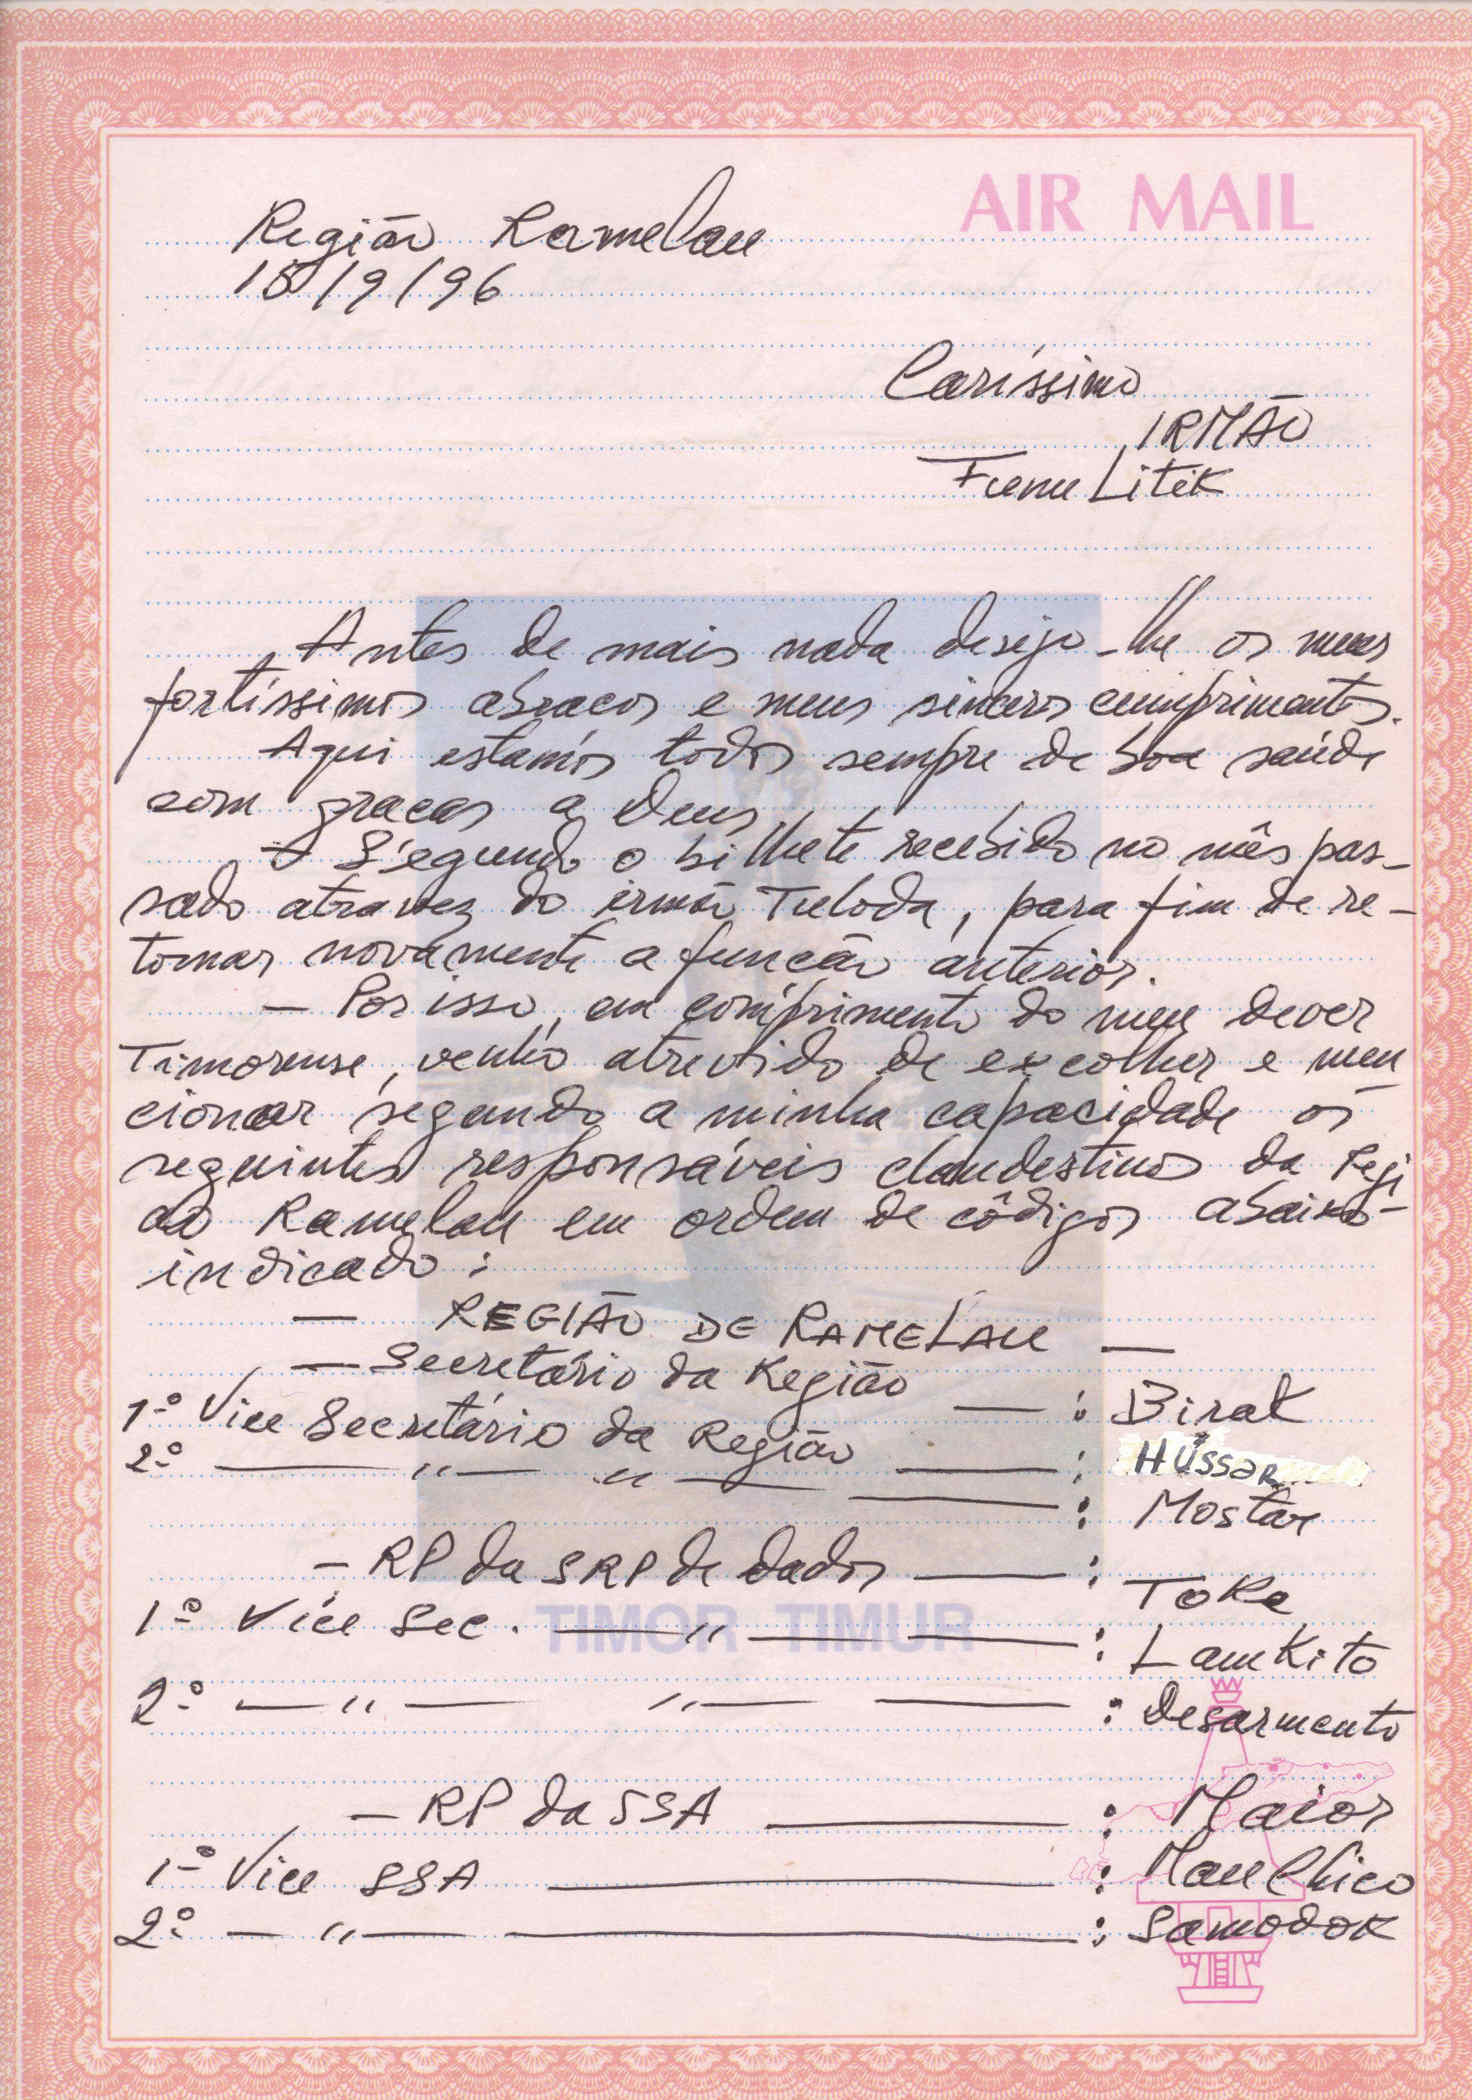 AIR MAIL
Região Ramelau
18/9/96
Caríssimo
IRMÃO
Funu Litik
Antes de mais nada desejo-lhe os meus
fortíssimos abracos e meus sinceros cumprimentos.
Aqui estamos todos sempre de boa saúde
com gracas a Deus
- Segundo o bilhete recebido no mês pas-
sado atravez do irmão Tuloda, para fim de re-
tomar novamente a funcão anterior.
- Por isso, em comprimento do meu dever
Timorense, venho atrevido de excolher e men
cionar segundo a minha capacidade os
seguintes responsáveis clandestinos da Regi
ão Ramelau em ordem de códigos abaixo-
indicado :
- REGIÃO DE RAMELAU -
- Secretário da Região — : Birak
1º Vice Secretário da Região — : HÚSSAR
2º — " — " — : Mostar
- RP da SRP de dados — : Toke
1º Vice Sec. — " — : Lamkito
2º — " — " — : Desarmento
TIMOR TIMUR
- RP da SSA — : Maior
1º Vice SSA — : Mau Chico
2º — " — : Samodok